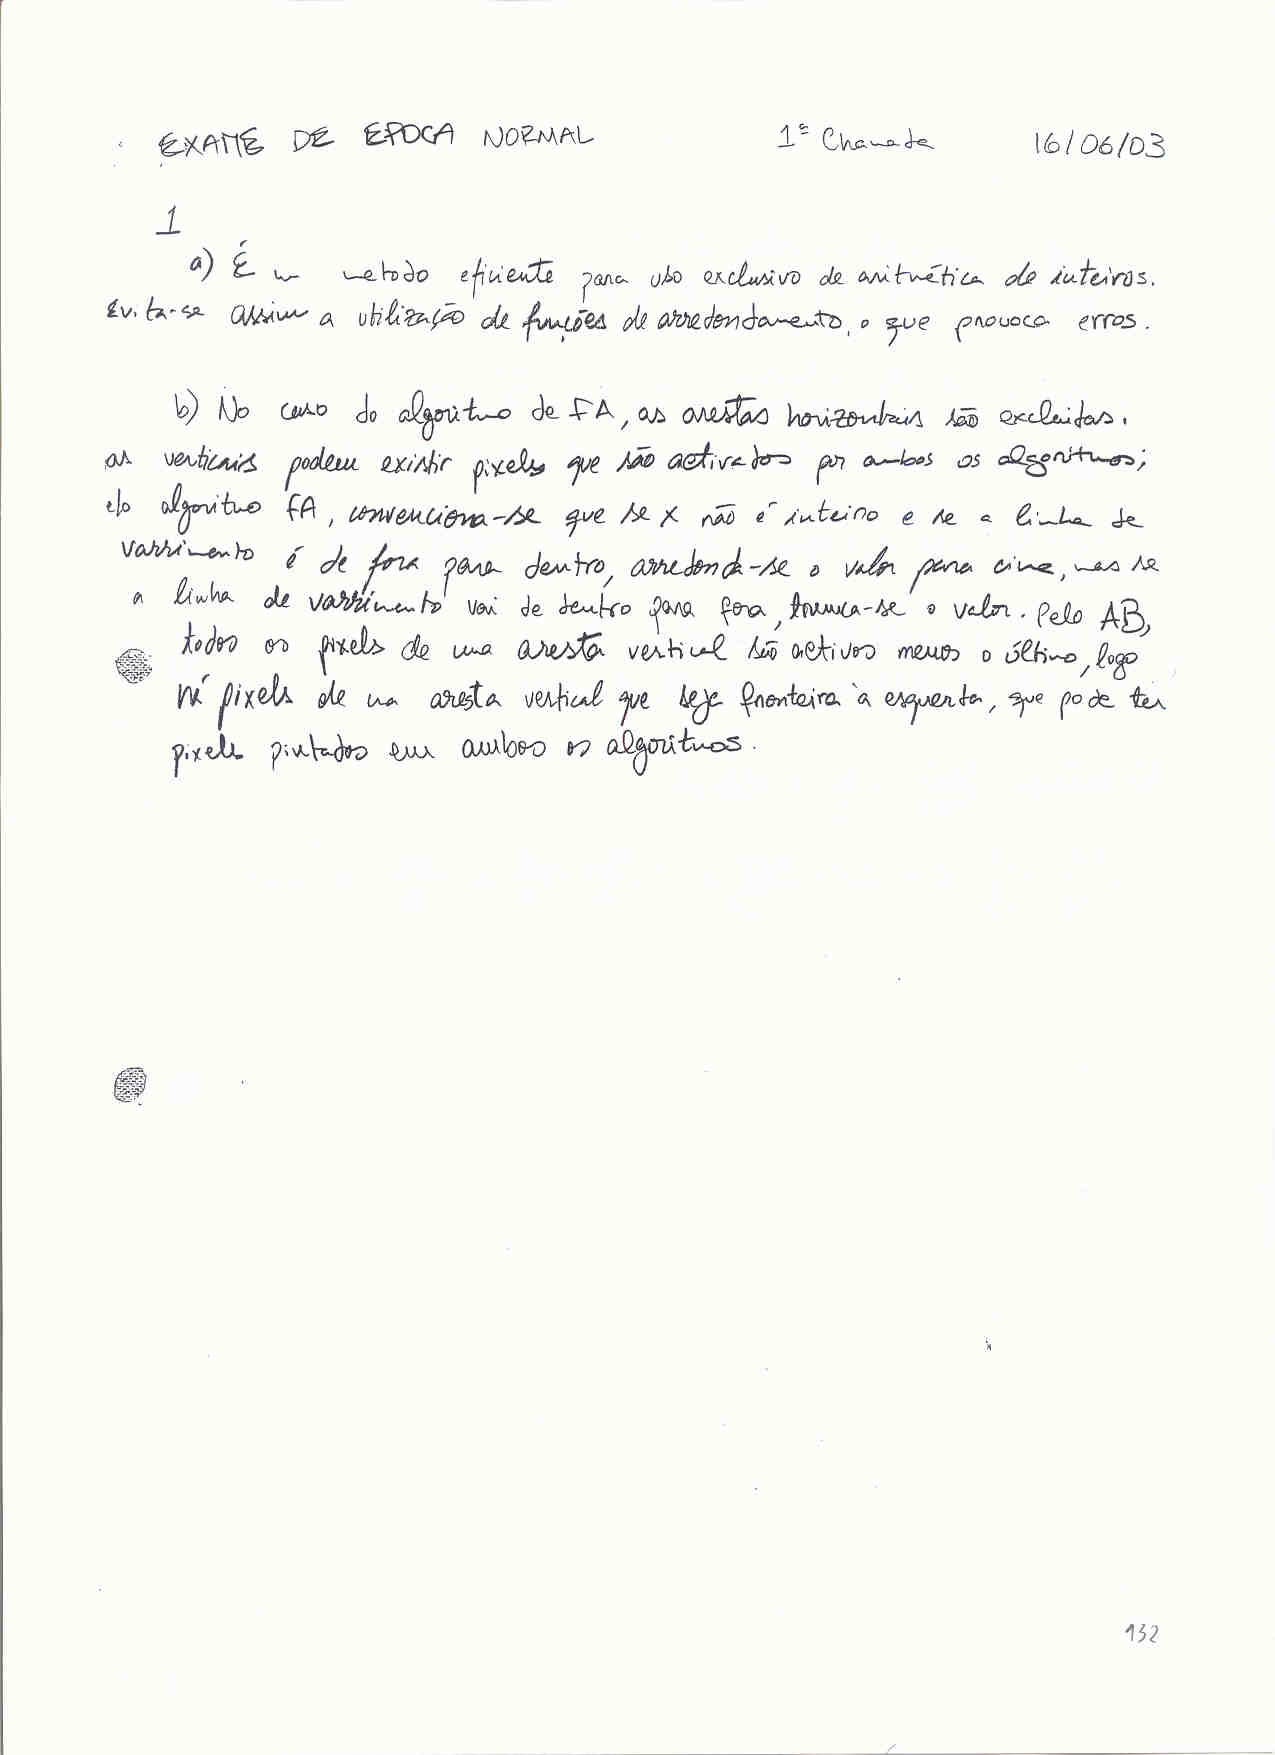 EXAME DE EPOCA NORMAL 1ª Chamada 16/06/03
1
a) É um metodo eficiente para uso exclusivo de aritmética de inteiros.
Evita-se assim a utilização de funções de arredondamento, o que provoca erros.
b) No caso do algoritmo de FA, as arestas horizontais são excluidas.
as verticais podem existir pixels que são activados por ambos os algoritmos;
p/o algoritmo FA, convenciona-se que se x não é inteiro e se a linha de
varrimento é de fora para dentro, arredonda-se o valor para cima, mas se
a linha de varrimento vai de dentro para fora, trunca-se o valor. Pelo AB,
todos os pixels de uma aresta vertical são activos menos o último, logo
há pixels de uma aresta vertical que seja fronteira à esquerda, que pode ter
pixels pintados em ambos os algoritmos.
132